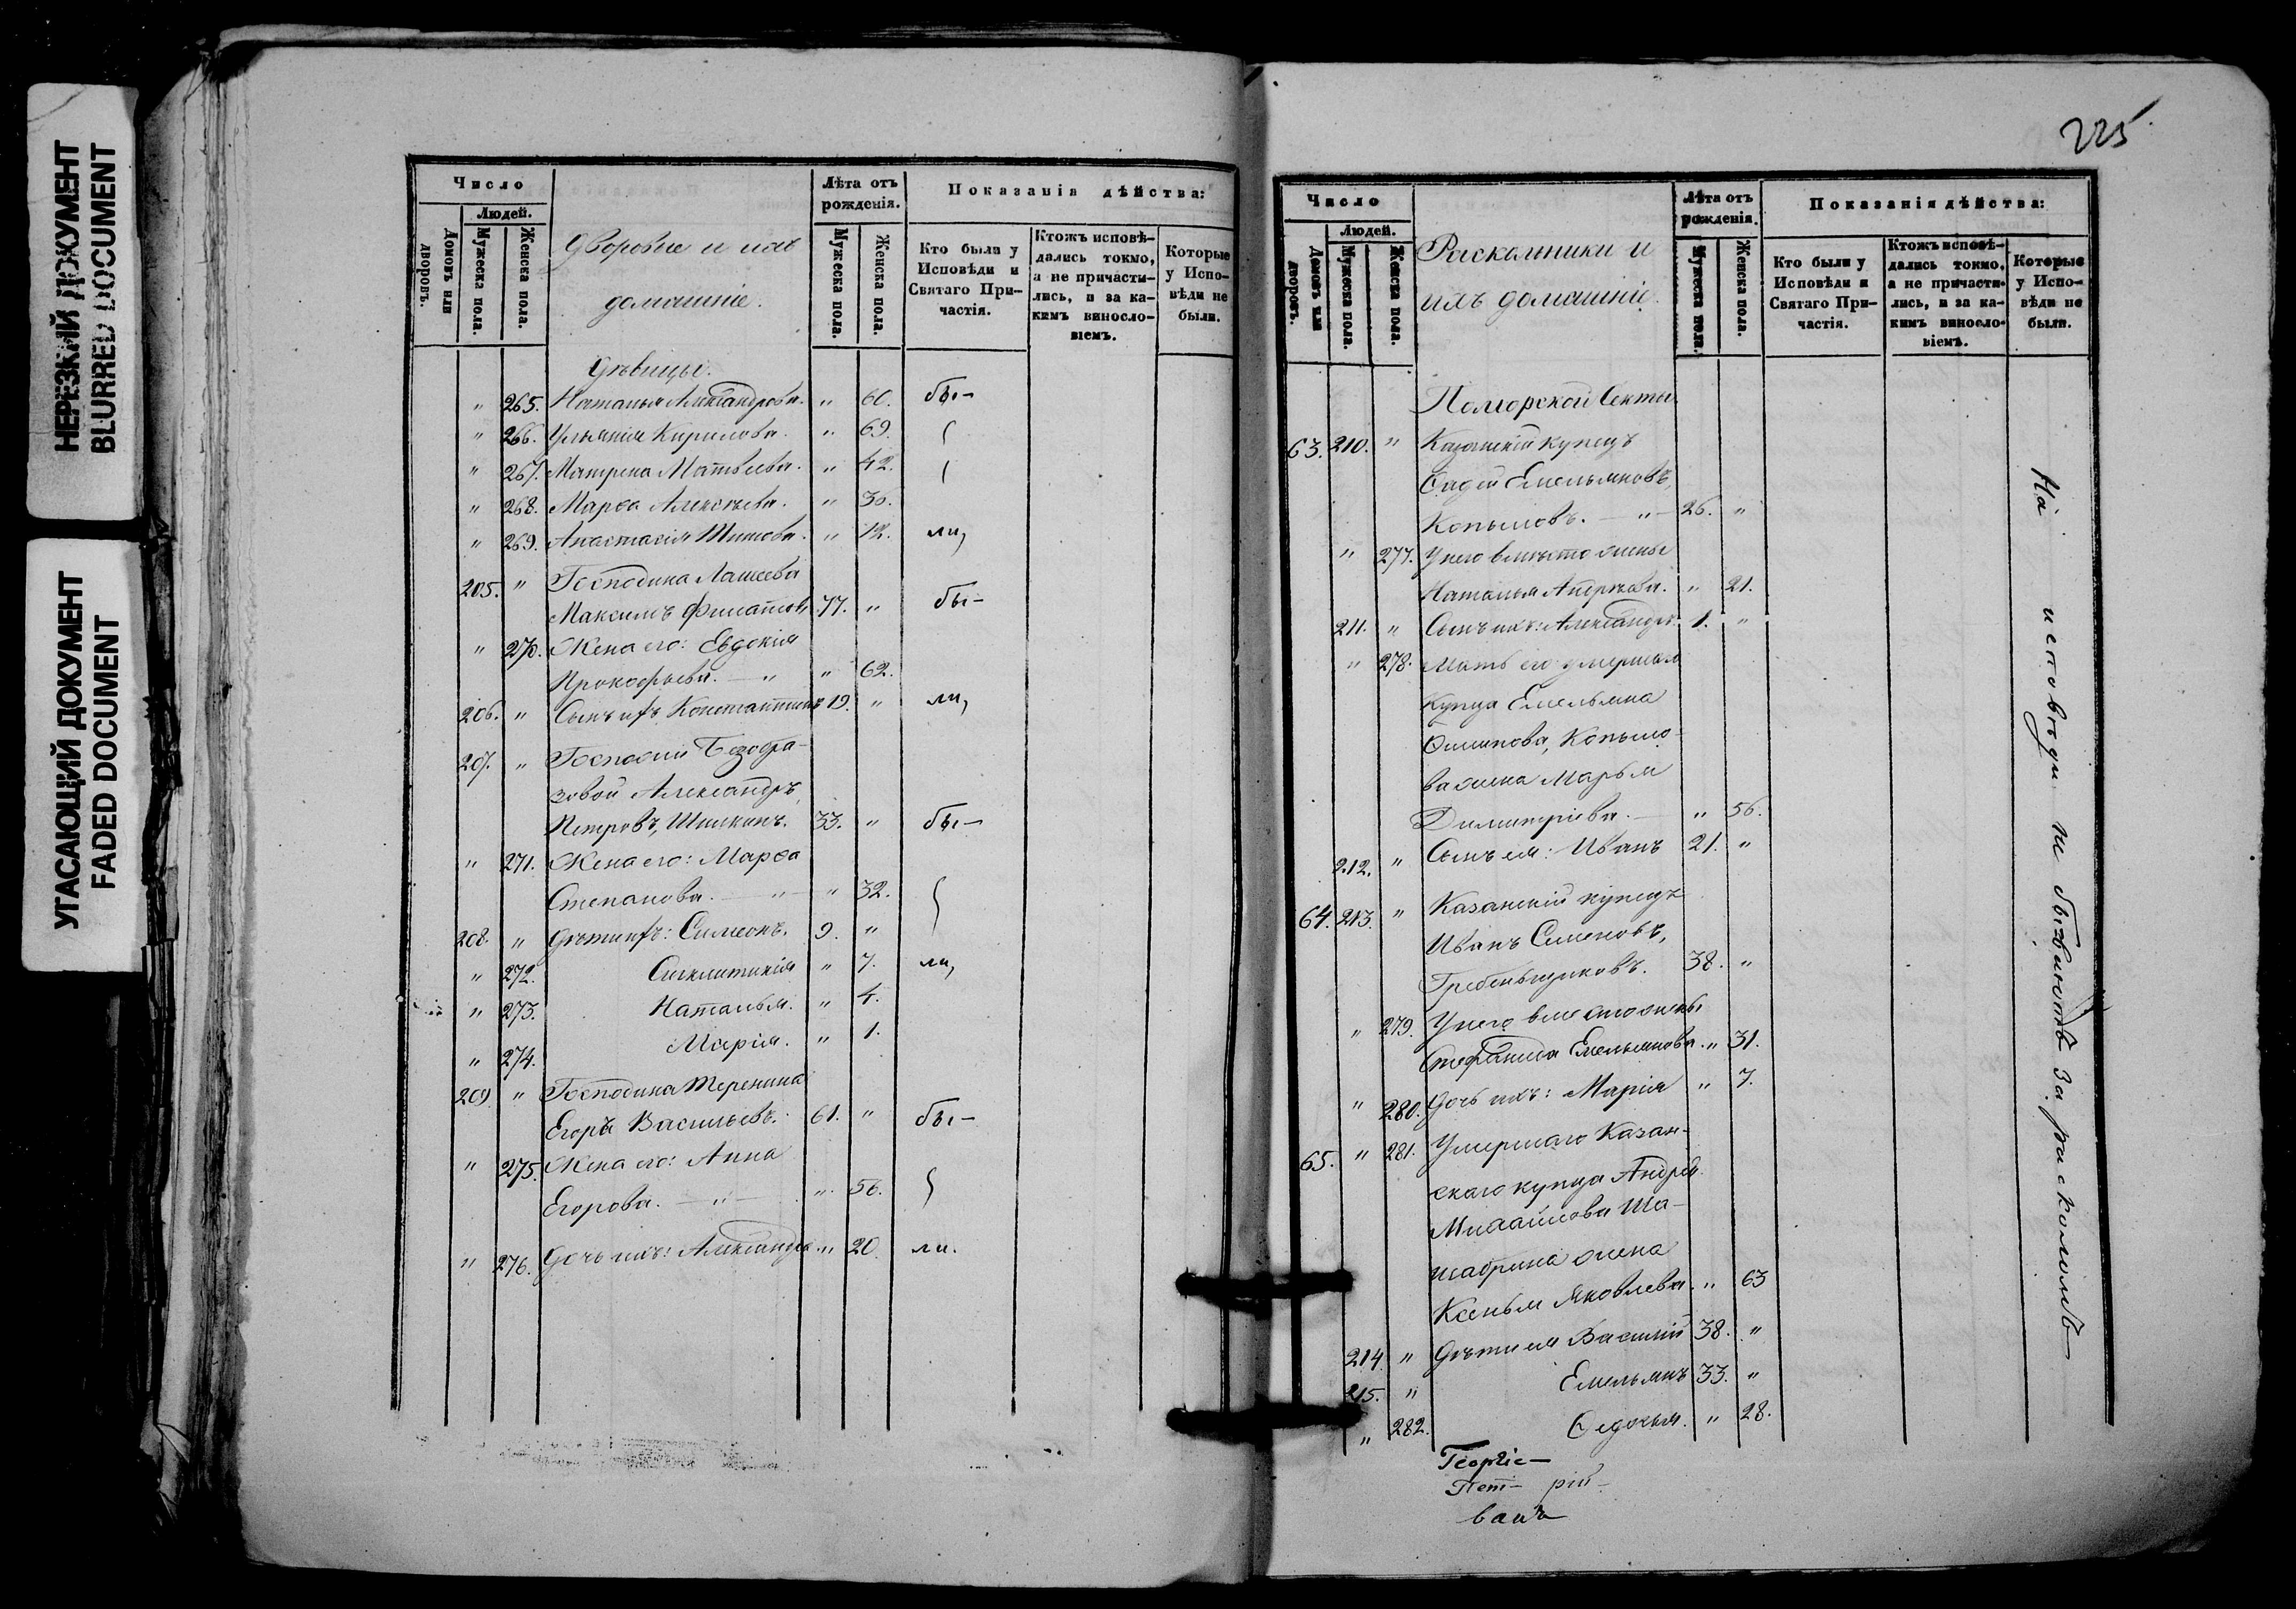 НЕРЕЗКИЙ ДОКУМЕНТ
BLURRED DOCUMENT
УГАСАЮЩИЙ ДОКУМЕНТ
FADED DOCUMENT
Число
Людей.
Домовъ или дворовъ.
Мужеска пола.
Женска пола.
Дворовые и ихъ
домашніе.
Лѣта отъ рожденія.
Мужеска пола.
Женска пола.
Показанія дѣйства:
Кто были у Исповѣди и Святаго При-
частія.
Ктожъ исповѣ-
дались токмо,
а не причасти-
лись, и за ка-
кимъ винсло-
віемъ.
Которые
у Испо-
вѣди не
были.
Дѣвицы.
" 265. Наталья Александрова. " 60. бы-
" 266. Ульянія Кирилова. " 69.
" 267. Матрена Матвѣева. " 42.
" 268. Марѳа Алексѣева. " 30.
" 269. Анастасія Титова. " 12. ли,
205. " Господина
Максимъ Филатовъ 77. " бы-
" 270. Жена его: Евдокія
Прокофьева. — " " 62.
206. " Сынъ ихъ Константинъ 19. " ли,
207. " Госпожи Безобра-
зовой Александръ
Петровъ, Шишкинъ. 33. " бы-
" 271. Жена его: Марѳа
Степанова. — " — " 32.
208. " Дѣти ихъ: Симеонъ. 9. "
" 272. Сигклитикія " 7. ли,
" 273. Наталья. " 4.
" 274. Марія. " 1.
209 " Господина Теренина
Егоръ Васильевъ. 61. " бы-
" 275. Жена его: Анна
Егорова. — " — " 56.
" 276. Дочь ихъ: Александра " 20. ли.
225.
Число
Людей.
Домовъ или дворовъ.
Мужеска пола.
Женска пола.
Раскольники и
ихъ домашніе.
Лѣта отъ рожденія.
Мужеска пола.
Женска пола.
Показанія дѣйства:
Кто были у Исповѣди и Святаго При-
частія.
Ктожъ исповѣ-
дались токмо,
а не причасти-
лись, и за ка-
кимъ винсло-
віемъ.
Которые
у Испо-
вѣди не
были.
Поморской Секты
63. 210. " Казанскій купецъ
Ѳадей Емельяновъ,
Копыловъ. — " — 26. "
" 277. У него вмѣсто жены
Наталья Андреева. " 21.
211. " Сынъ ихъ: Александръ. 1. "
" 278. Мать его умершаго
купца Емельяна
Копыло-
ва жена Марья
Димитріева. — " 56.
212. " Сынъ ея: Иванъ 21. "
64. 213. " Казанскій купецъ
Иванъ Семеновъ,
Гребеньщиковъ. 38. "
" 279. У него вместо жены
Стефанида Емельянова. " 31.
" 280. Дочь ихъ: Марія " 7.
65. " 281. Умершаго Казан-
скаго купца Андрея
Михайлова Ша-
жена
Ксенья Яковлева. " 63
214. " Дѣти ея Василій 38. "
215. " Емельянъ 33. "
" 282. Ѳедосья. " 28.
На исповѣди не бываютъ за расколомъ
Георгіе-
Пет- рій-
ванъ